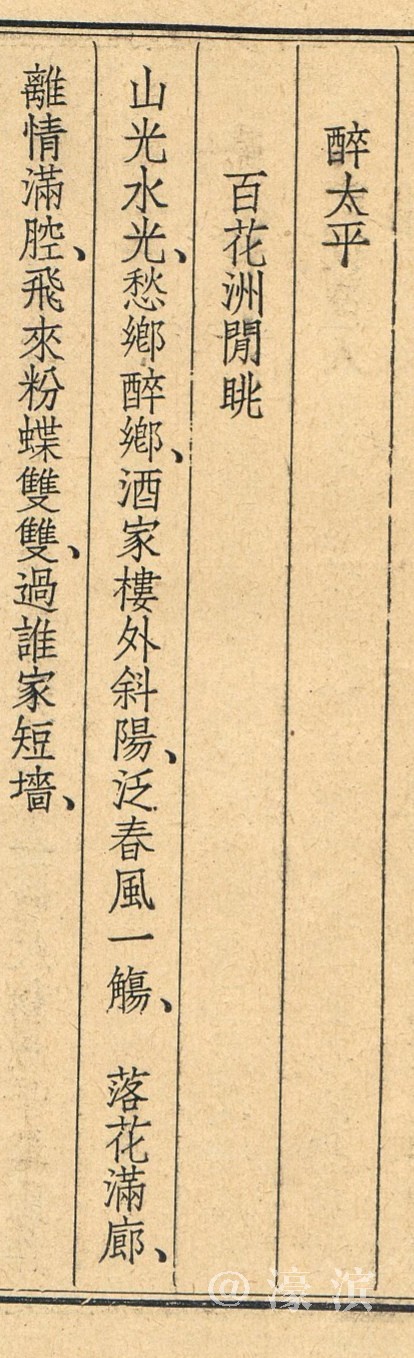 醉太平
百花洲閒眺
山光水光、愁鄉醉鄉、酒家樓外斜陽、泛春風一觴、　落花滿廊、
離情滿腔、飛來粉蝶雙雙、過誰家短墻、
@濠滨